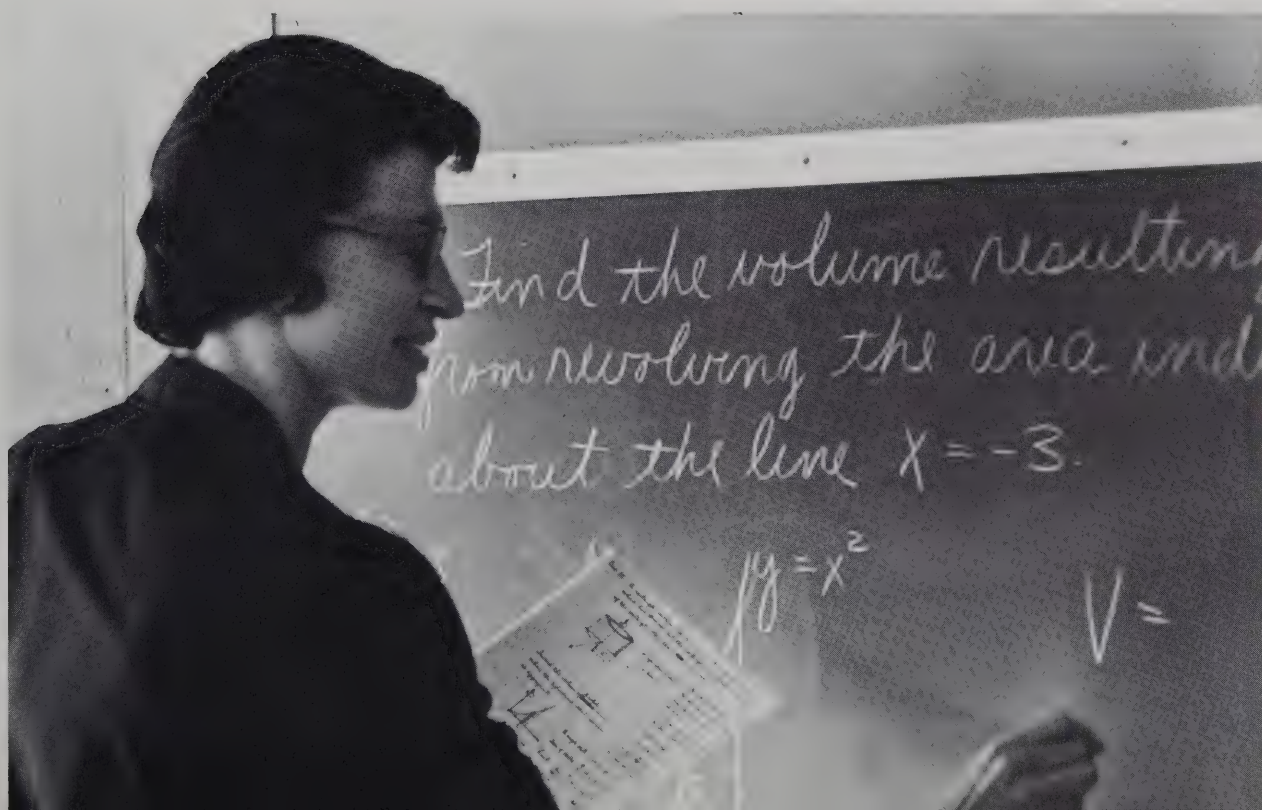 Find the volume resulting
from revolving the area ind
about the line x = -3.
y = x²
V =